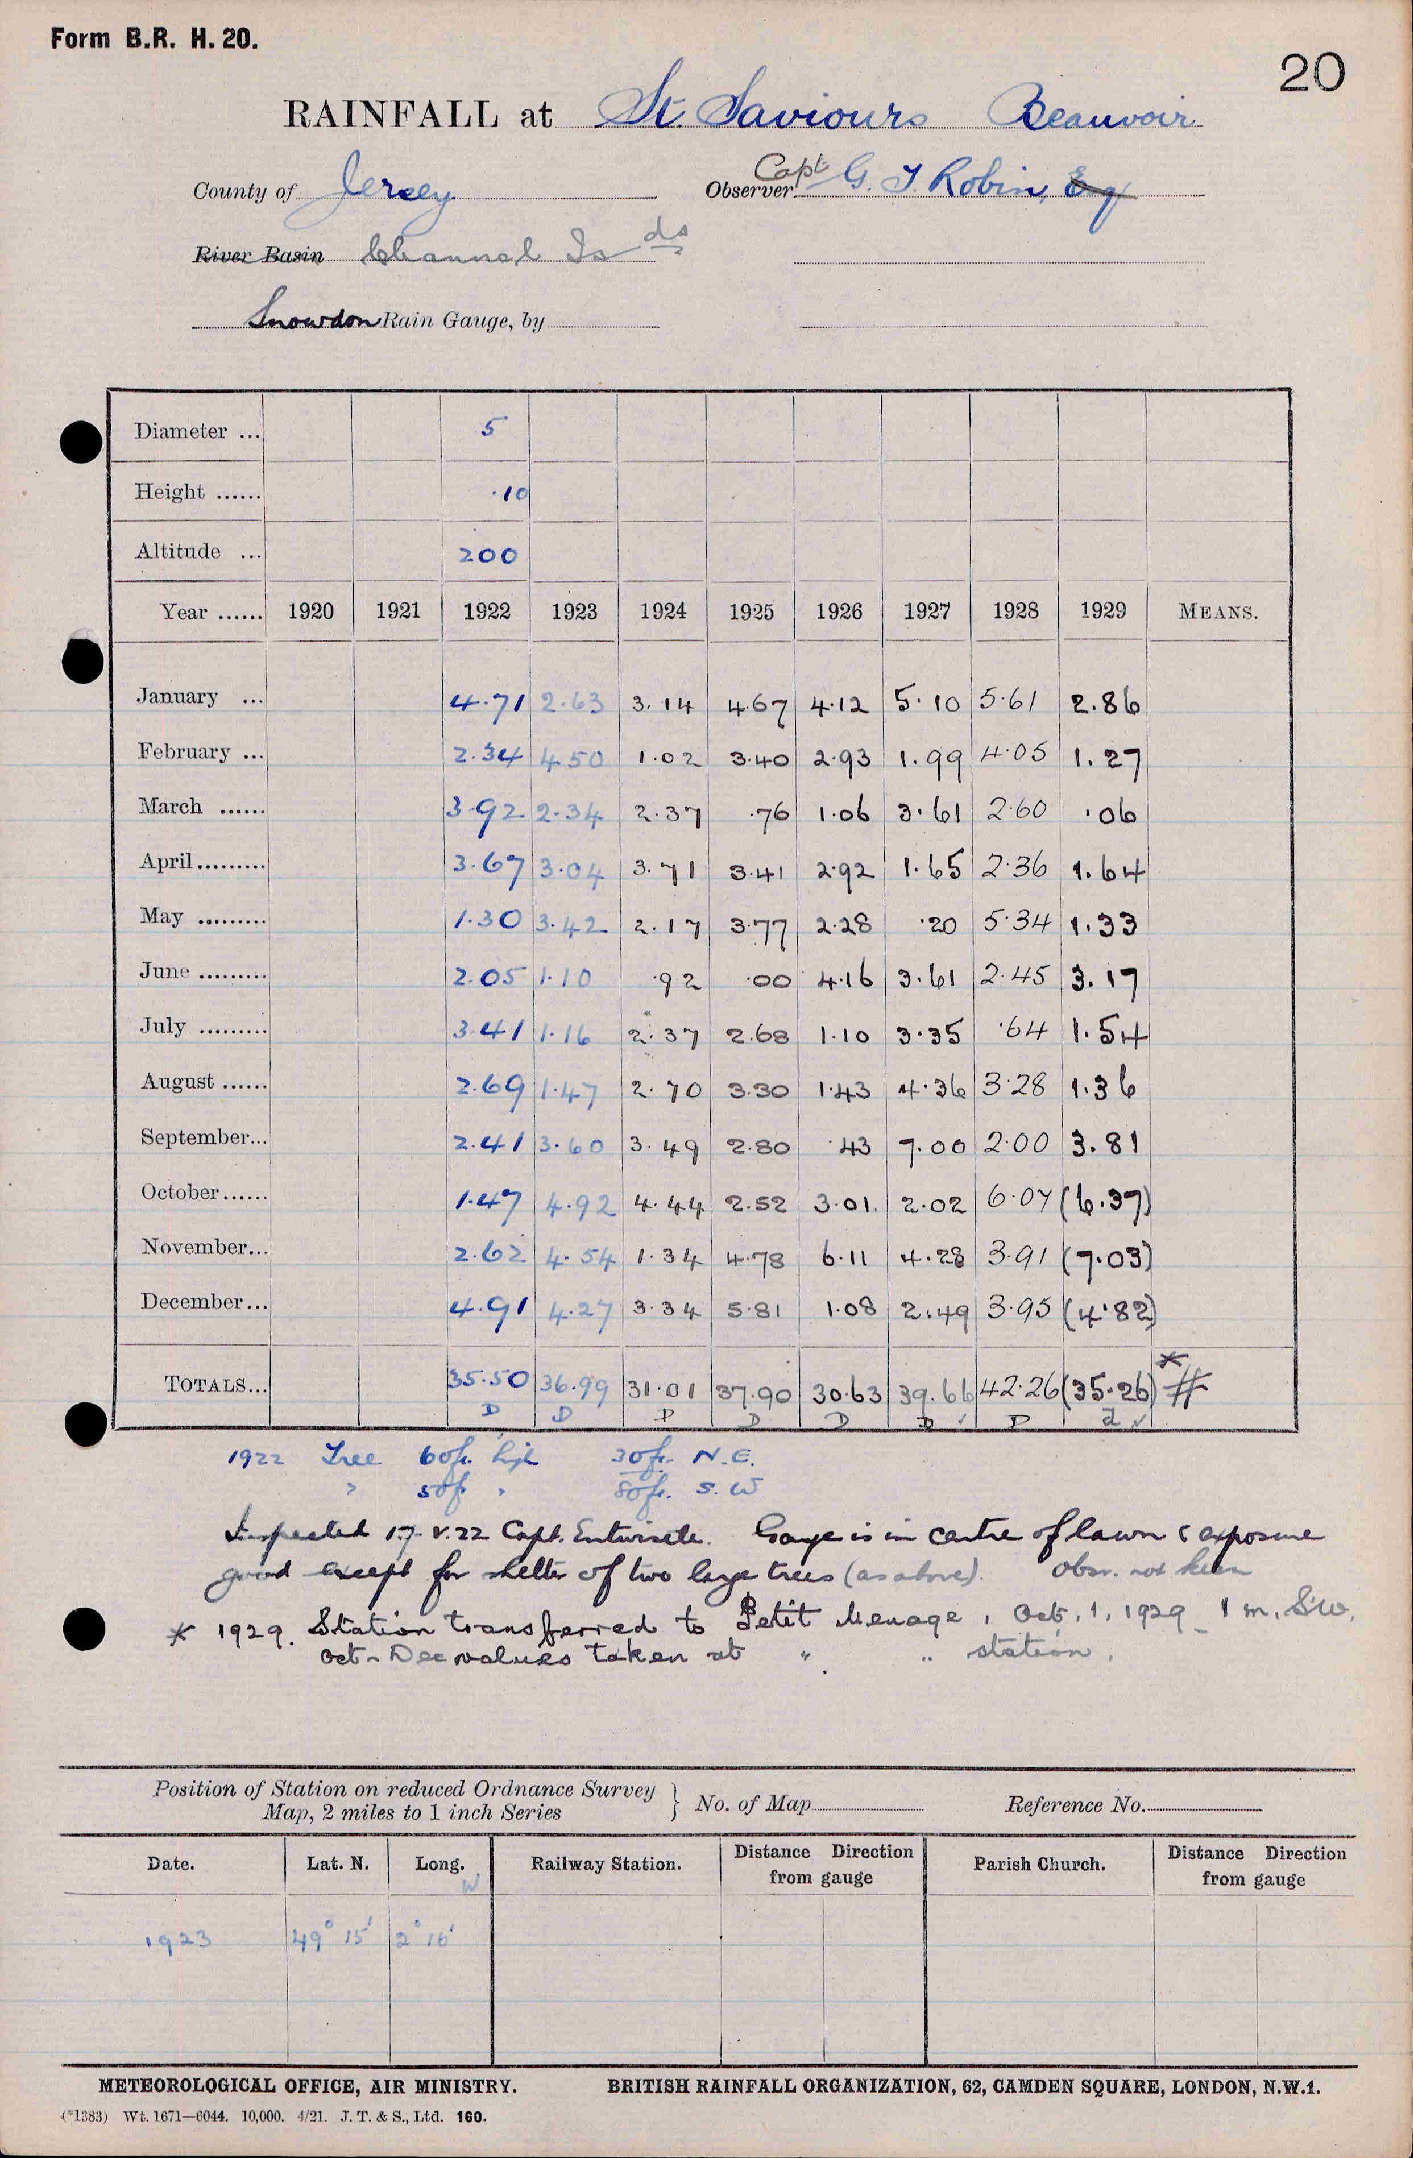 Form B.R. H. 20.
20
RAINFALL at St. Saviours Beauvoir
County of Jersey Observer Capt. G. T. Robin, Esq
River Basin Channel Is ds
Snowdon Rain Gauge, by
Diameter ... 5
Height ...... .10
Altitude ... 200
Year ...... 1920 1921 1922 1923 1924 1925 1926 1927 1928 1929 MEANS.
January ... 4.71 2.63 3.14 4.67 4.12 5.10 5.61 2.86
February ... 2.34 4.50 1.02 3.40 2.93 1.99 4.05 1.27
March ...... 3.92 2.34 2.37 .76 1.06 3.61 2.60 .06
April......... 3.67 3.04 3.71 3.41 2.92 1.65 2.36 1.64
May ......... 1.30 3.42 2.17 3.77 2.28 .20 5.34 1.33
June ......... 2.05 1.10 .92 .00 4.16 3.61 2.45 3.17
July ......... 3.41 1.16 2.37 2.68 1.10 3.35 .64 1.54
August ...... 2.69 1.47 2.70 3.30 1.43 4.36 3.28 1.36
September... 2.41 3.60 3.49 2.80 .43 7.00 2.00 3.81
October...... 1.47 4.92 4.44 2.52 3.01. 2.02 6.07 (6.37)
November... 2.62 4.54 1.34 4.78 6.11 4.28 3.91 (7.03)
December... 4.91 4.27 3.34 5.81 1.08 2.49 3.95 (4.82)
TOTALS... 35.50 36.99 31.01 37.90 30.63 39.66 42.26 (35.26) * #
D D D D D D ✓ D a ✓
1922 Tree 60ft. high 30ft. N.E.
" 50ft " 80ft. S.W
Inspected 17.V.22 Capt. Entwistle. Gauge is in centre of lawn & exposure
good except for shelter of two large trees (as above). Obsr. not seen
* 1929. Station transferred to Petit Menage, Oct. 1, 1929 1 m. S.W.
Oct-Dec values taken at " " station.
Position of Station on reduced Ordnance Survey Map, 2 miles to 1 inch Series } No. of Map Reference No.
Date. Lat. N. Long. W Railway Station. Distance Direction from gauge Parish Church. Distance Direction from gauge
1923 49° 15' 2° 16'
METEOROLOGICAL OFFICE, AIR MINISTRY. BRITISH RAINFALL ORGANIZATION, 62, CAMDEN SQUARE, LONDON, N.W.1.
(*1383) Wt. 1671—6044. 10,000. 4/21. J. T. & S., Ltd. 160.